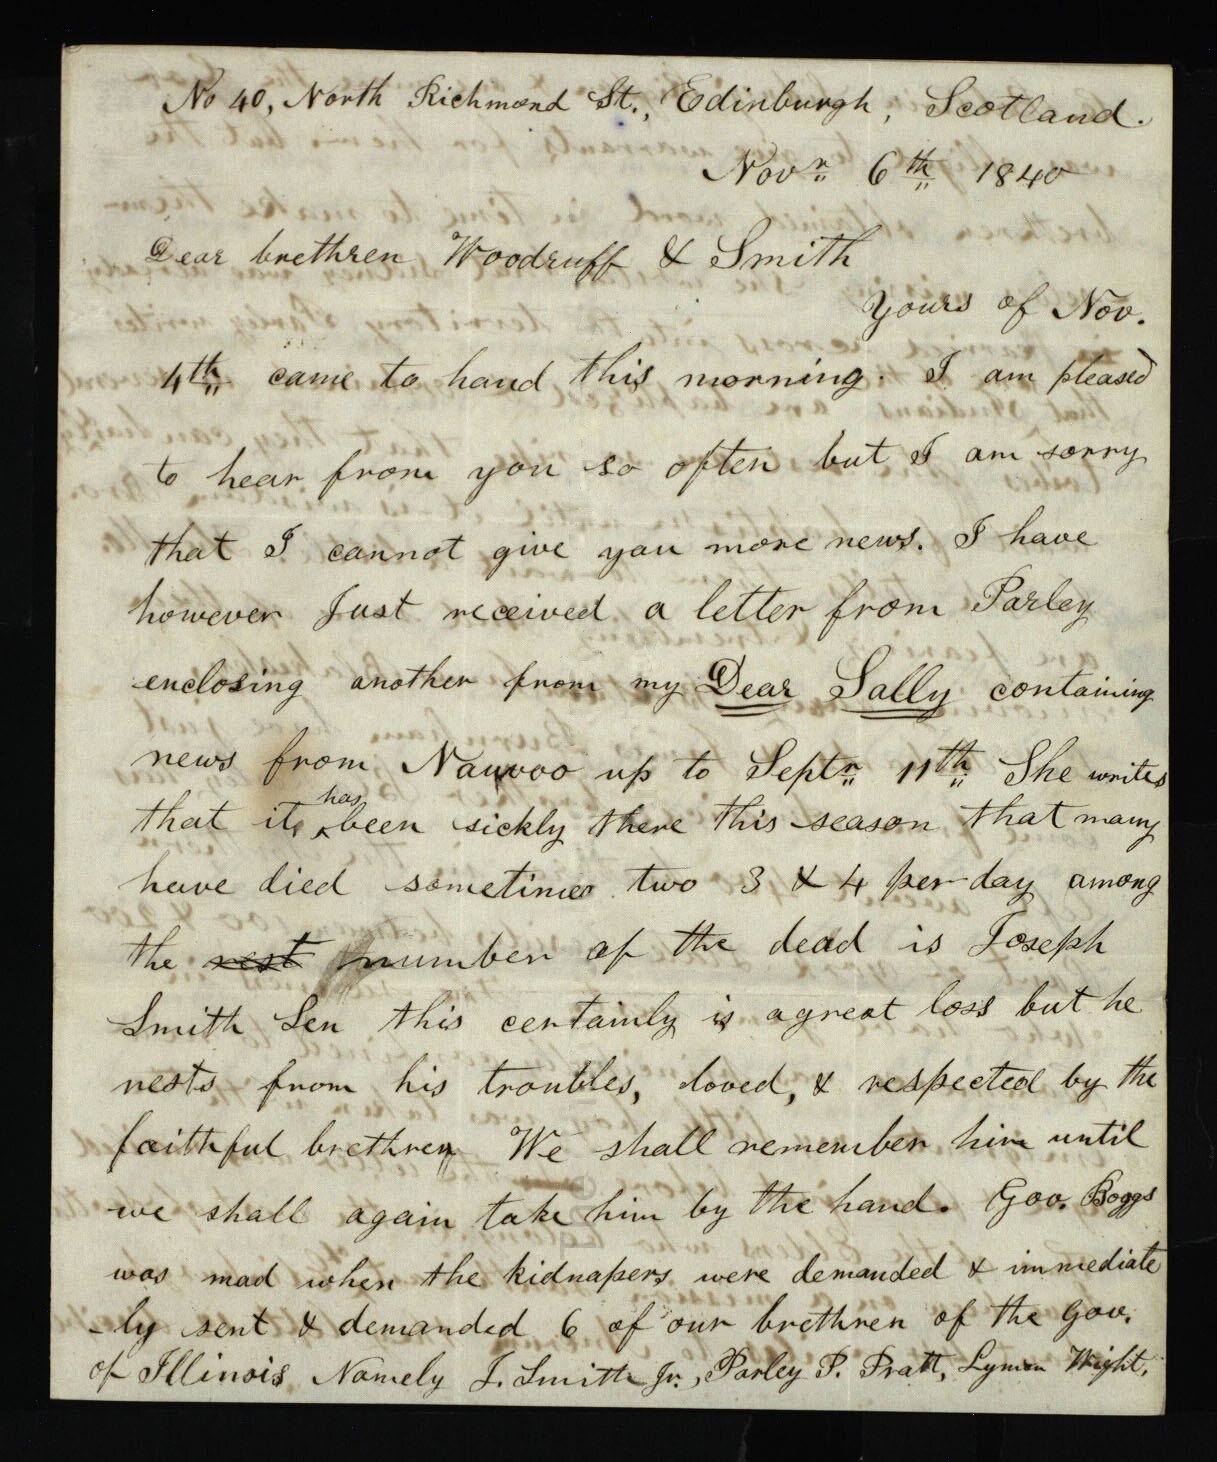 No 40, North Richmond St., Edinburgh, Scotland.
Novr 6th 1840
Dear brethren Woodruff & Smith
Yours of Nov.
4th came to hand this morning. I am pleased
to hear from you so often but I am sorry
that I cannot give you more news. I have
however Just received a letter from Parley
enclosing another from my Dear Sally containing
news from Nauvoo up to Septr 11th She writes
that it has been sickly there this season that many
have died sometimes two 3 & 4 per day among
the rest number of the dead is Joseph
Smith Sen this certainly is a great loss but he
rests from his troubles, loved, & respected by the
faithful brethren We shall remember him until
we shall again take him by the hand. Gov. Boggs
was mad when the kidnapers were demanded & immediate
-ly sent & demanded 6 of our brethren of the Gov.
of Illinois Namely J. Smith Jr., Parley P. Pratt, Lyman Wight,